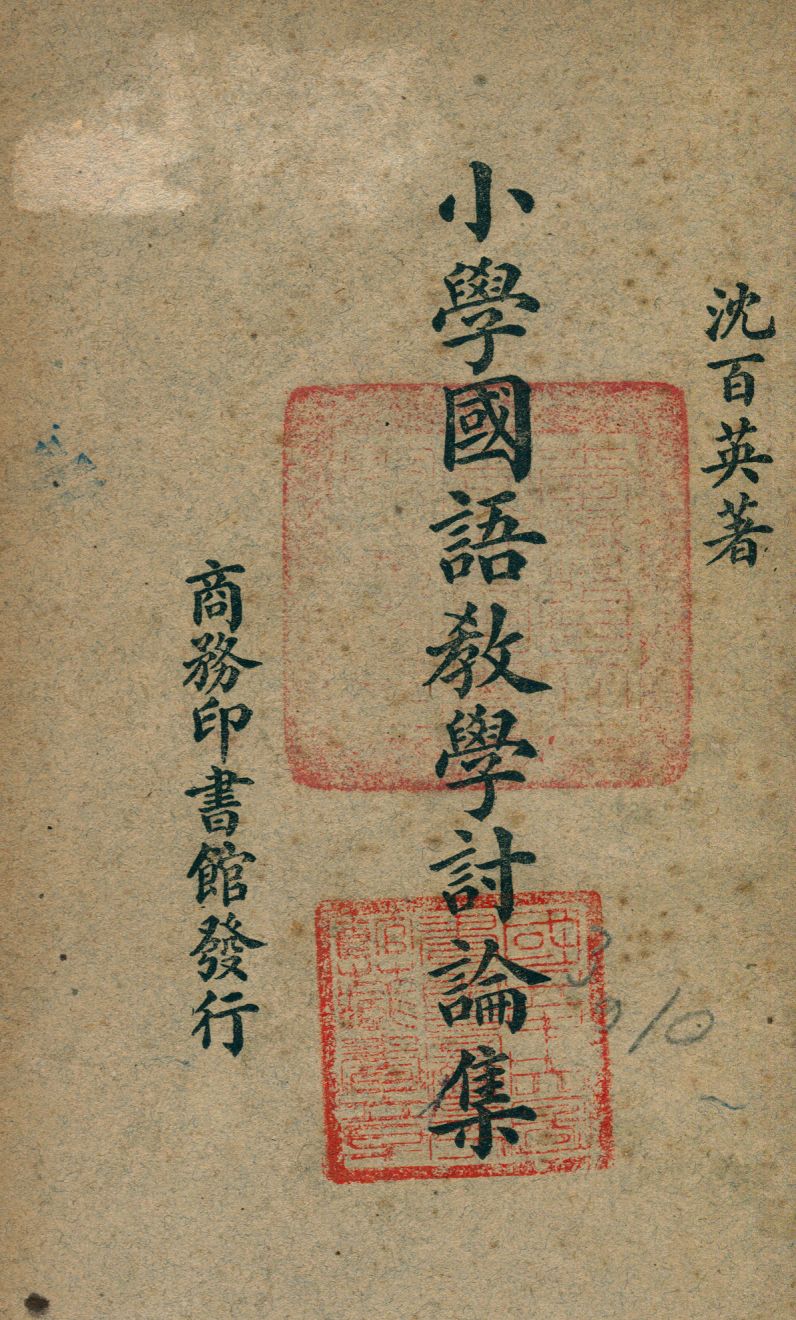 沈百英著
小學國語教學討論集
商務印書館發行